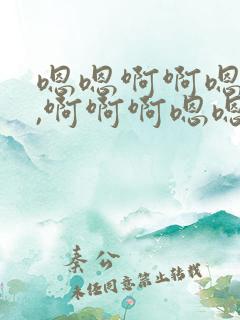 嗯嗯啊啊嗯
,啊啊啊嗯嗯
秦兮
未经同意禁止转载